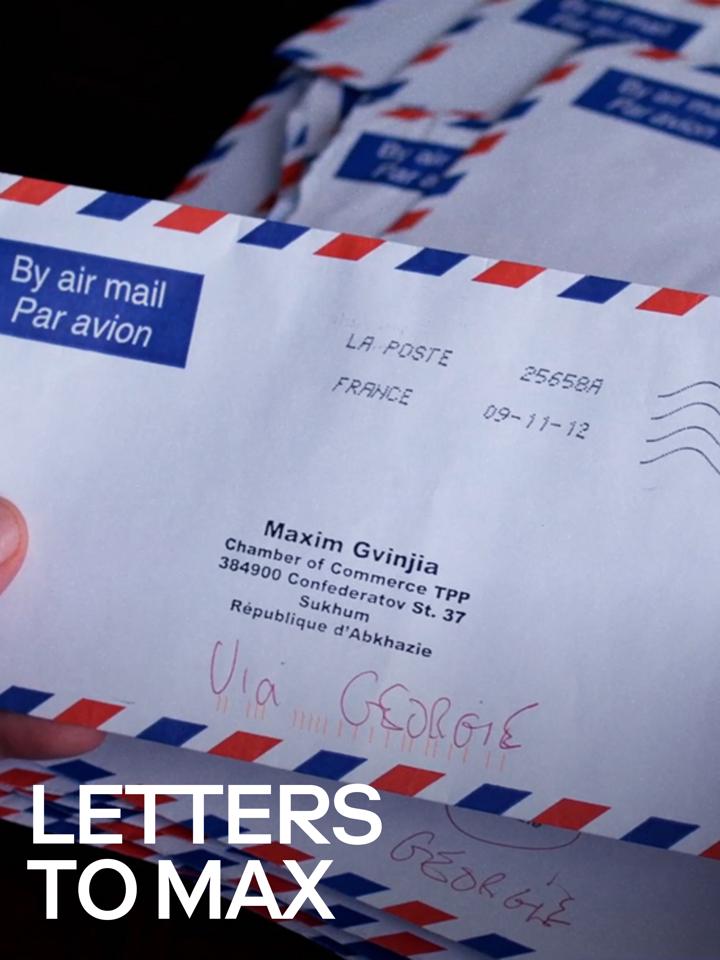 By air mail
Par avion
By air mail
Par avion
By air
By air mail
Par avion
LA POSTE 25658A
FRANCE 09-11-12
Maxim Gvinjia
Chamber of Commerce TPP
384900 Confederatov St. 37
Sukhum
République d'Abkhazie
Via GEORGIE
GEORGIE
LETTERS
TO MAX